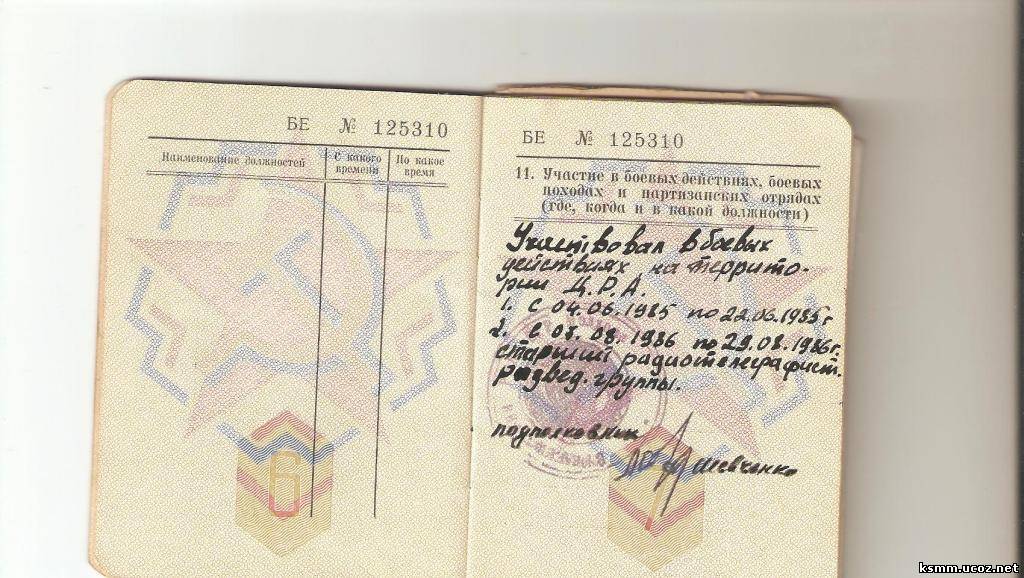 БЕ № 125310
Наименование должностей
С какого времени
По какое время
6
БЕ № 125310
11. Участие в боевых действиях, боевых
походах и партизанских отрядах
(где, когда и в какой должности)
Участвовал в боевых
действиях на террито-
рии Д.Р.А.
1. С 04.06.1985 по 22.06.1985г
2. С 08.08.1986 по 29.08.1986г.
старший радиотелеграфист
развед. группы.
подполковник
Шевченко
7
ksmm.ucoz.net